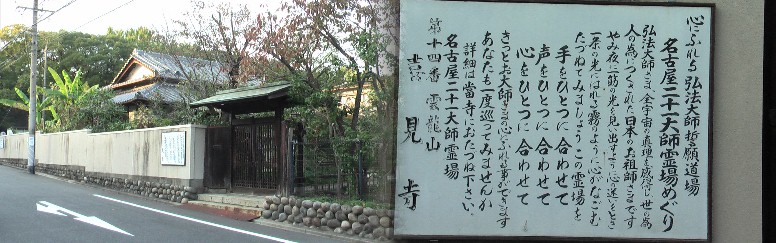 心にふれる 弘法大師 誓願道場
名古屋二十一大師霊場めぐり
弘法大師さま、全宇宙の真理を感得し世の為
人の為につくされた日本のお祖師さまです
やみ夜に一筋の光を見い出すよう心の迷いをとき
一条の光にはれる霧のように心がなごむ
たづねてみましょう この霊場を
手をひとつに合わせて
声をひとつに合わせて
心をひとつに合わせて
きっとお大師さまの心にふれる事ができます
あなたも一度巡ってみませんか
詳細は当寺におたづね下さい。
名古屋二十一大師霊場
第十四番 雲龍山
見寺